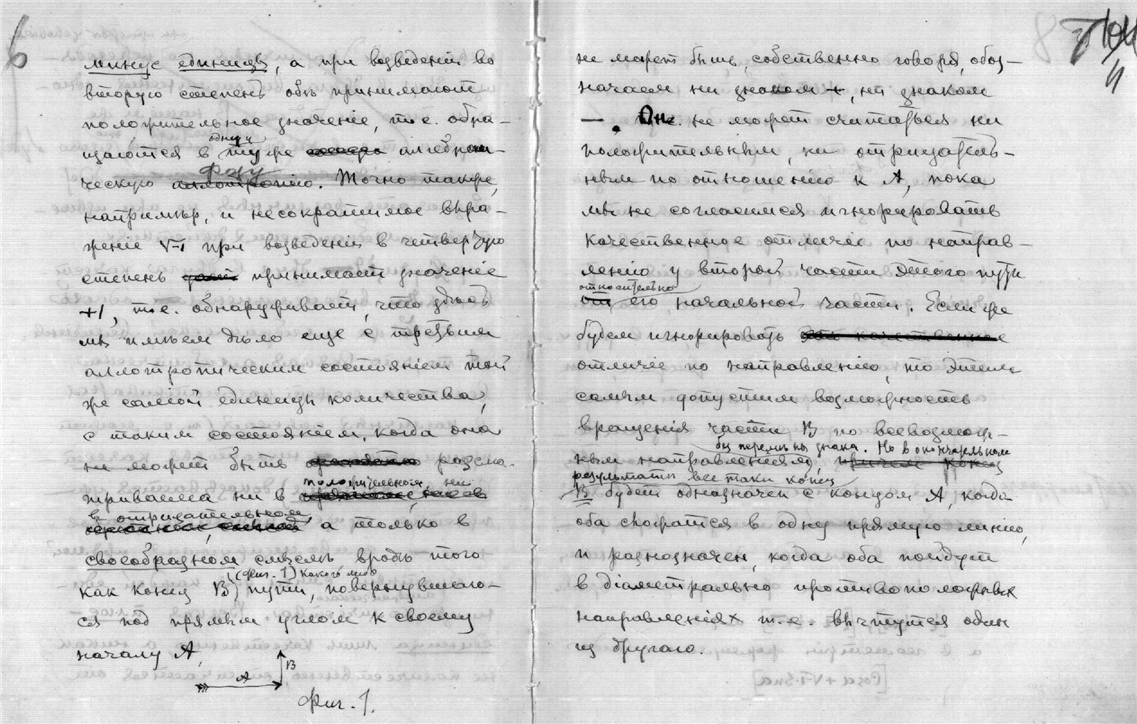 6
минус единица, а при возведеніи во
вторую степень обѣ принимают
положительное значеніе, т.е. обра-
щаются в одну и ту же алгебраи-
ческую фазу. Точно также,
напримѣр, и несократимое выра-
женіе √-1 при возведеніи в четвертую
степень принимает значеніе
+1, т.е. обнаруживает, что здѣсь
мы имѣем дѣло еще с третьим
аллотропическим состояніем той
же самой единицы количества,
с таким состояніем, когда она
не может быть разсма-
триваема ни в положительном, ни
в отрицательном, а только в
своеобразном смыслѣ вродѣ того
(фиг. 1) какого либо
как конец B пути, повернувшаго-
ся под прямым углом к своему
началу A,
A
B
Фиг. 1.
не может быть, собственно говоря, обоз-
начаем ни знаком +, ни знаком
—. Он не может считаться ни
положительным, ни отрицатель-
ным по отношенію к A, пока
мы не согласимся игнорировать
качественное отличіе по направ-
ленію у второй части этого пути
относительно
его начальной части. Если же
будем игнорировать
отличіе по направленію, то этим
самым допустим возможность
вращенія части B по всевозмож-
без перемѣны знака. Но в окончательном
ным направленіям,
результатѣ все таки конец
B будет однозначен с концом A, когда
оба сложатся в одну прямую линію,
и разнозначен, когда оба пойдут
в діаметрально противоположных
направленіях т.е. вычтутся один
из другого.